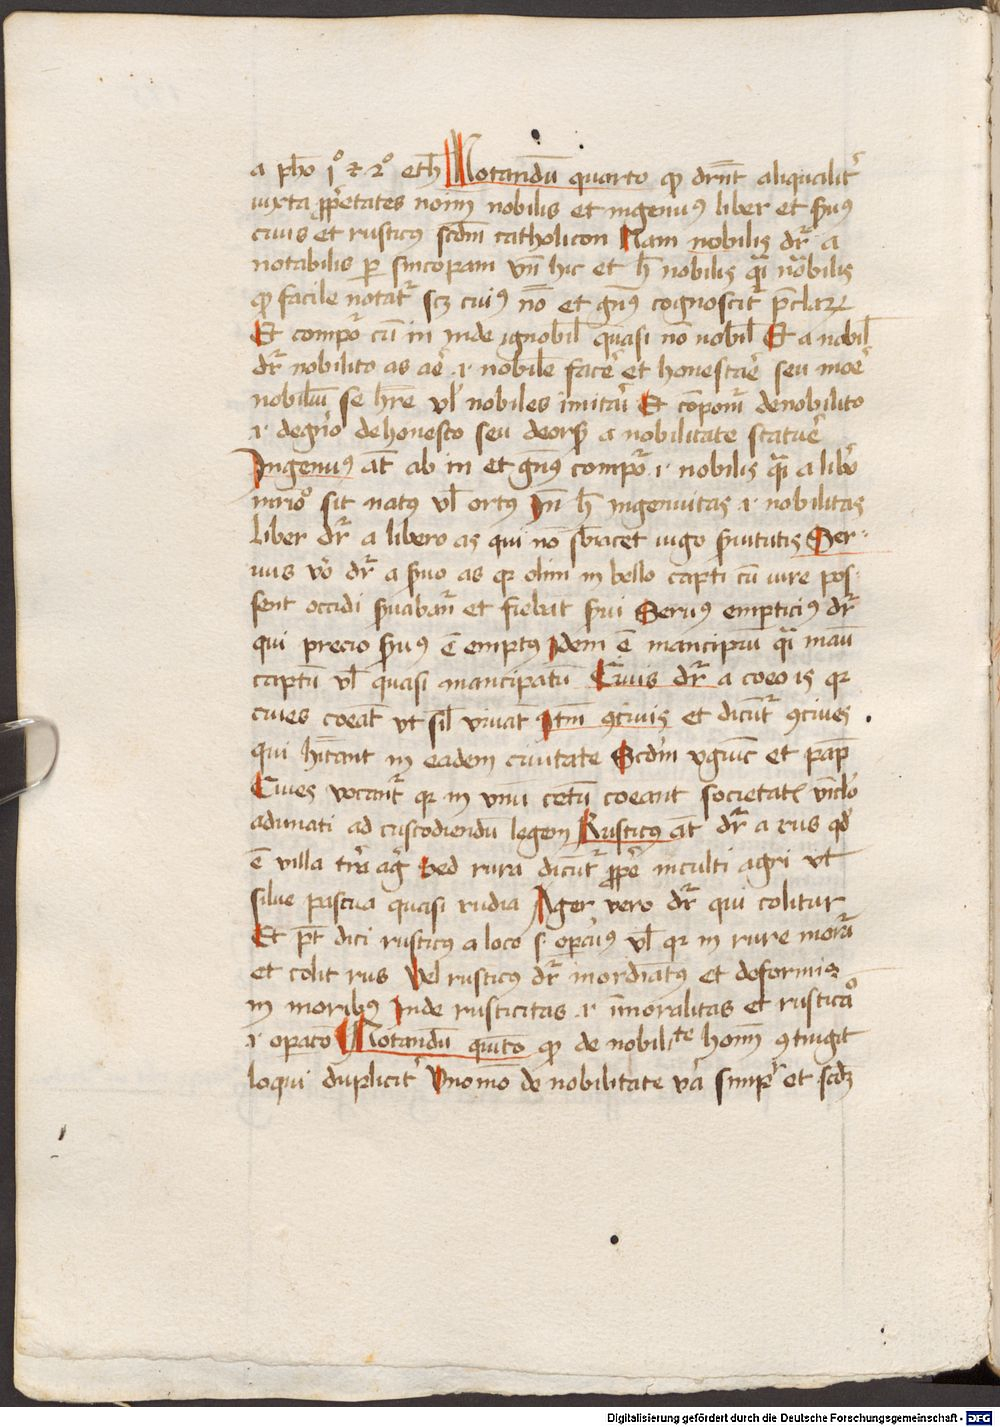 a ph̄o jº ⁊ 2º eth̄ Notandū quarto ꝙ drn̄t aliqualit᷑
iuxta ꝓp̄etates noīm nobilis et ingenuꝰ liber et ẜuꝰ
ciuis et rusticꝰ scdm̄ catholicon Nam nobilis dr̄ a
notabilis per sincopam vn̄ hic et h̄ nobilis qͣi nōbilis
ꝙ facile notat᷑ scꝫ cuiꝰ nō et gn̄ꝰ cognoscit᷑ p̄claꝝ
Et compo᷑ cū in inde ignobil̄ quasi nō nobil̄ Et a nobil̄
dr̄ nobilito as ae᷑ .i. nobile face᷑ et honestae᷑ seu moe᷑
nobiliū se hr̄e vl̄ nobiles imitai᷑ Et cōponit᷑ denobilito
.i. degn̄o dehonesto seu deorsꝫ a nobilitate statue᷑
Ingenuꝰ āt ab in et gn̄ꝰ compo᷑ .i. nobilis qͣi a libo᷑
sit natꝰ vl̄ ortꝰ Jn̄ h̄ ingenuitas .i. nobilitas
liber dr̄ a libero as qui nō sb̄iacet iugo ẜuitutis Ser-
uus vo᷑ dr̄ a ẜuo as qꝛ olim in bello capti cū iure pos-
sent occidi ẜuabant᷑ et fiebāt ẜui Seruꝰ empticiꝰ dr̄
qui precio ẜuꝰ ē emptꝰ Idem ē mancipiū qͣi manū
captū vl̄ quasi mancipatū Ciuis dr̄ a coeo is qꝛ
ciues coeāt vt sil̄ viuāt Itm̄ ꝯciuis et dicūt᷑ ꝯciues
qui hītant in eadem ciuitate Scdm̄ vguic̄ et pap̄
Ciues vocant᷑ qꝛ in vnū cetū coeant societatꝭ vīclo
adunati ad custodiendū legem Rusticꝰ āt dr̄ a rus qd̄
ē villa trā ag᷑ Sed rura dicūt᷑ ꝓpe᷑ inculti agri vt
silue pascua quasi rudia Ager vero dr̄ qui colitur
Et pt̄ dici rusticꝰ a loco s. oꝑciꝰ vl̄ qꝛ in rure morat᷑
et colit rus Vel rusticꝰ dr̄ inordīatꝰ et deformis
in moribꝰ Inde rusticitas .i. īmoralitas et rusticaº
.i. oꝑacō Notandū quīto ꝙ de nobilitᵗᵉ hoīm ꝯtingit
loqui duplicit᷑ Vnomō de nobilitate vͣ simpᵗ et scdꝫ